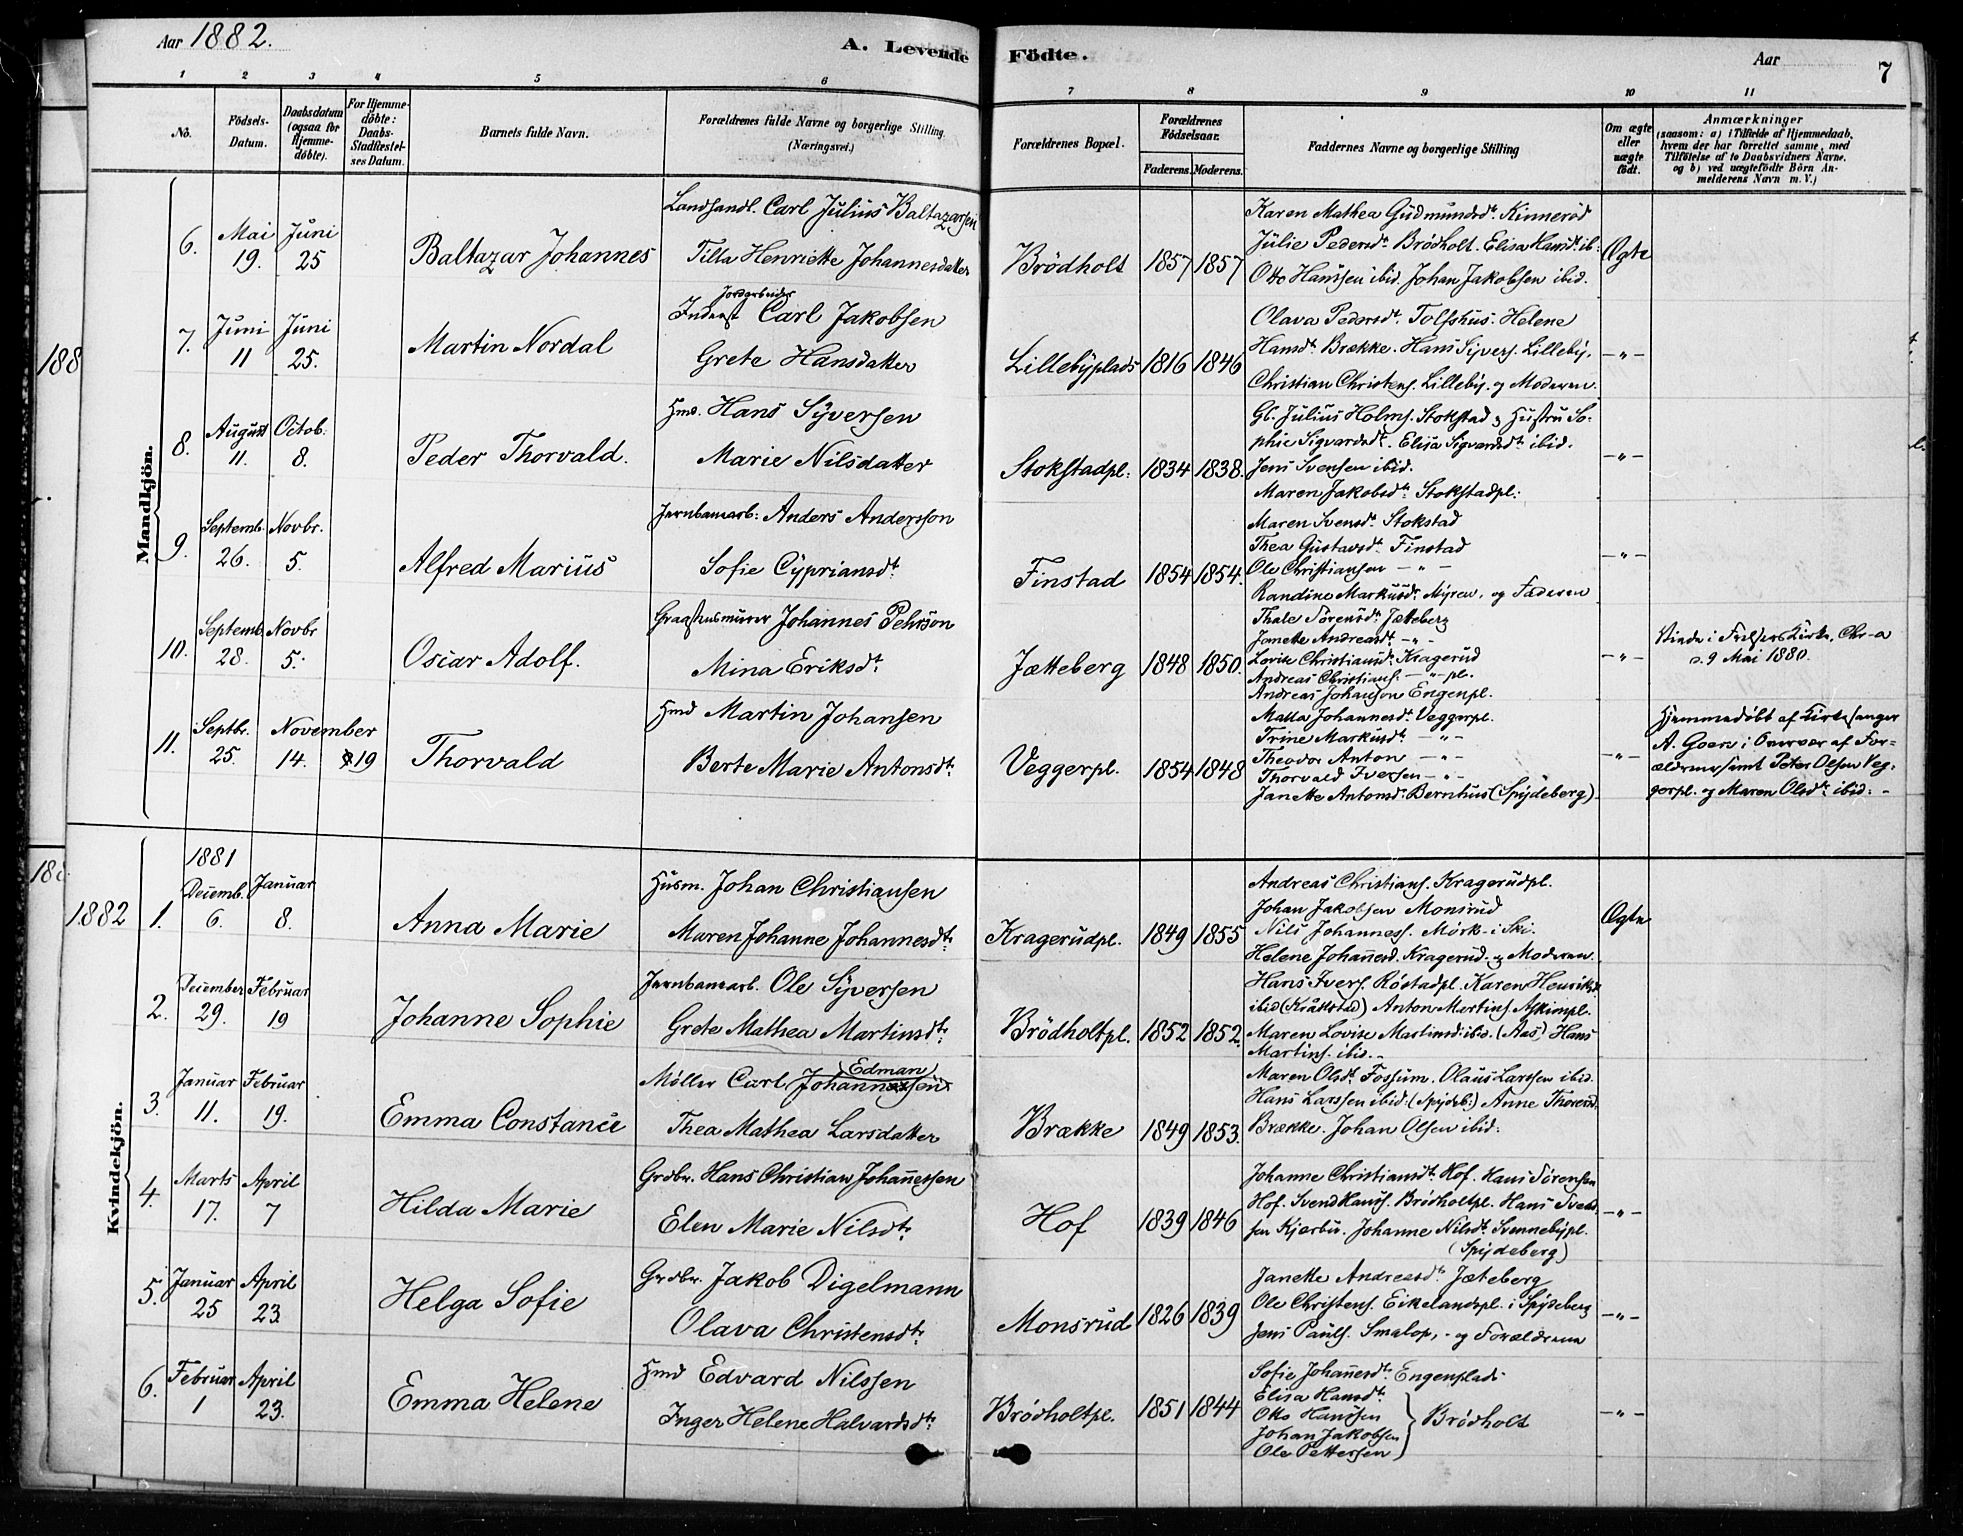 Aar 1882.
A. Levende Födte.
Aar
7
1 2 3 4 5 6 7 8 9 10 11
No.
Födsels-Datum.
Daabsdatum (ogsaa for Hjemme-döbte).
For Hjemme-döbte: Daabs-Stadfæstel-ses Datum.
Barnets fulde Navn.
Forældrenes fulde Navne og borgerlige Stilling. (Næringsvei.)
Forældrenes Bopæl.
Forældrenes Födselsaar.
Faderens. Moderens.
Faddernes Navne og borgerlige Stilling
Om ægte eller uægte födt.
Anmærkninger
(saasom: a) i Tilfælde af Hjemmedaab,
hvem der har forrettet samme, med
Tilföielse af to Daabsvidners Navne,
og b) ved uægtefödte Börn An-
melderens Navn m. V.)
Mandkjön.
6. Mai 19. Juni 25
Baltazar Johannes
Landhandl. Carl Julius Baltazarsen
Tilla Henriette Johannesdatter
Brödholt 1857 1857
Karen Mathea Gudmundsdt. Kinneröd
Julie Pedersdt. Brödholt. Elisa Hansdt. ib:
Otto Hanssen ibid. Johan Jakobsen ibid.
Ægte
7. Juni 11 Juni 25.
Martin Nordal
Jordarbeider
Inderst Carl Jakobsen
Grete Hansdatter
Lillebyplads 1816 1846
Olava Pedersdt. Tolfshus. Helene
Hansdt. Brække. Hans Syvers. Lilleby.
Christian Christens. Lilleby. og Moderen.
—"—
8. August 11. Octob. 8.
Peder Thorvald.
Hmd. Hans Syversen
Marie Nilsdatter
Stokstadpl. 1834 1838.
Gb. Julius Holms. Stokstad og Hustru So-
phie Sigvardsdt. Elisa Sigvardsdt. ibid.
Jens Svensen ibid.
Maren Jakobsdt. Stokstadpl.
—"—
9. Septemb. 26. Novbr. 5.
Alfred Marius
Jernbanearb: Anders Andersson
Sofie Cypriansdt.
Finstad 1854 1854.
Maren Svensdt. Stokstad
Thea Gustavsdt. Finstad
Ole Christiansen —"—
Randine Markusdt. Myren, og Faderen
—"—
10. Septemb. 28. Novbr 5.
Oscar Adolf.
Johannes Pehrson
Mina Eriksdt.
Jætteberg 1848 1850.
Thale Sörensdt. Jætteberg
Janette Andreasdt. —"—
Lovise Christiansdt. Kragerud
Andreas Christians. —"— pl.
Andreas Johanson Engenpl.
—"—
Viede i Frelsers Kirke, Chr-a
d. 9 Mai 1880.
11. Septbr. 25. November 14. 19
Thorvald
Hmd Martin Johansen
Berte Marie Antonsdt.
Veggerpl. 1854 1848
Matta Johannesdt. Veggerpl.
Trine Markusdt. —"—
Theodor Anton —"—
Thorvald Iversen —"—
Janette Antonsd. Bernhus (Spydeberg)
—"—
Hjemmedöbt af Kirkesanger
A. Goen i Overvær af For-
ældrene samt Peter Olsen Veg-
gerpl. og Maren Olsdt. ibid.
188
1882
Kvindekjön.
1. 1881 Decemb. 6. Januar 8.
Anna Marie
Husm. Johan Christiansen
Maren Johanne Johannesdt.
Kragerudpl. 1849 1855
Andreas Christians. Kragerudpl.
Johan Jakobsen Monsrud
Nils Johanness. Mörk i Ski.
Helene Johannesd. Kragerud. og Moderen.
Ægte
2. December 29. Februar 19
Johanne Sophie
Jernbanearb. Ole Syversen
Grete Mathea Martinsdt.
Brödholtpl. 1852 1852.
Hans Ivers. Röstadpl. Karen Henriksdt.
ibid (Kraakstad) Anton Martins. Askimpl.
Maren Lovise Martinsd. ibid. (Aas) Hans
Martins. ibid.
3. Januar 11. Februar 19.
Emma Constance
Edman
Møller Carl Johannessen
Thea Mathea Larsdatter
Brække 1849 1853.
Maren Olsdt. Fossum. Olaus Larssen ibid.
Hans Larssen ibid. (Spydeb.) Anne Thoresd.
Brække. Johan Olsen ibid.
4. Marts 17. April 7
Hilda Marie
Grdbr. Hans Christian Johannessen
Elen Marie Nilsdt.
Hof 1839 1846
Johanne Christiansdt. Hof. Hans Sörensen
Hof. Svend Hans. Brödholtpl. Hans Svend-
sen Kjærbu. Johanne Nilsdt. Svennebypl.
(Spydeberg)
—"—
5. Januar 25 April 23.
Helga Sofie
Grdbr. Jakob Digelmann
Olava Christensdt.
Monsrud 1826 1839
Janette Andreasdt. Jætteberg
Ole Christens. Eikelandspl. i Spydeberg
Jens Pauls. Smalop, og Forældrene
—"—
6. Februar 1 April 23.
Emma Helene
Hmd Edvard Nilssen
Inger Helene Halvardsdt.
Brödholtpl. 1851 1844
Sofie Johannesdt. Engenplads
Elisa Hansdt.
Otto Hanssen
Johan Jakobsen
Ole Pettersen
Brödholt
—"—